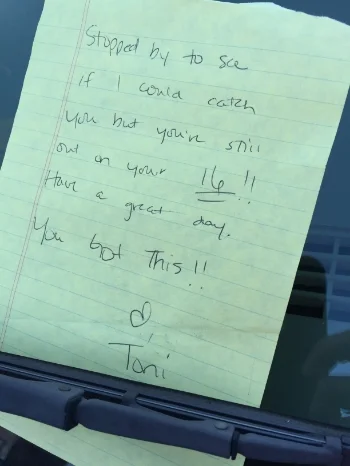 Stopped by to see
if I could catch
you but you're still
out on your 16!!
Have a great day.
You got This!!
Toni